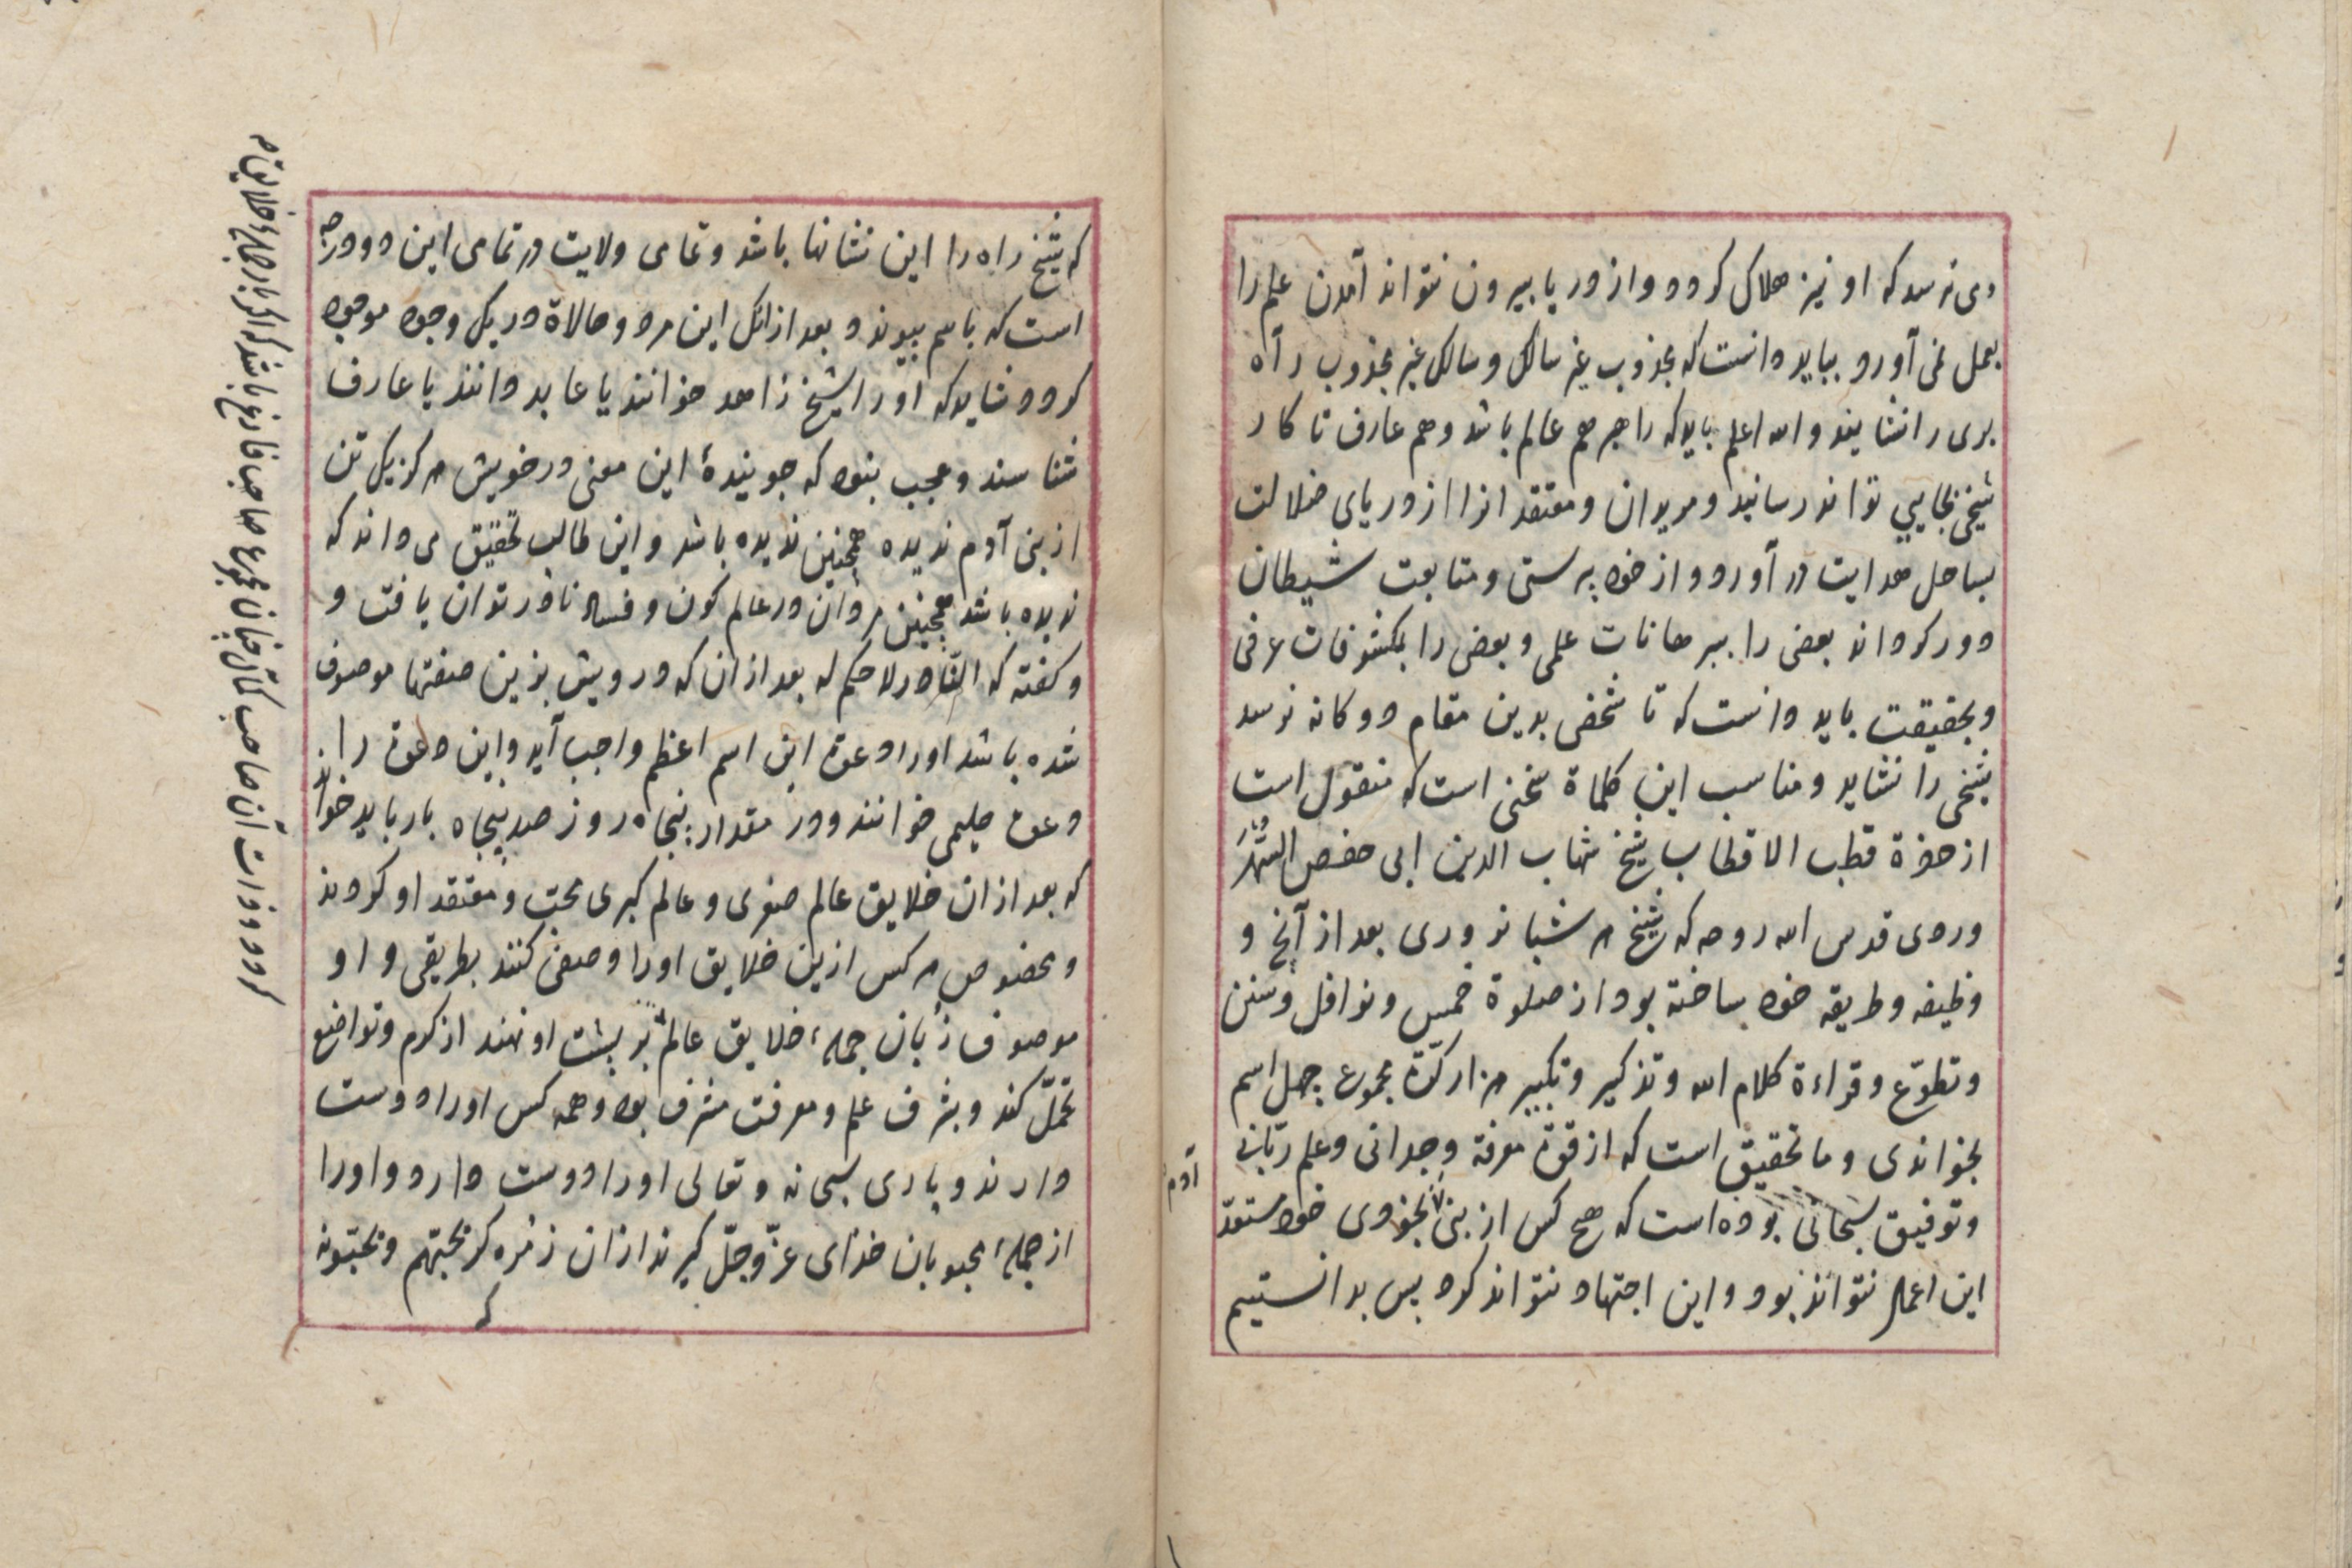 وی نرسد که او نیز هلاک کردد و از دریا بیرون نتواند آمدن علم را
بعمل نمی آورد بباید دانست که مجذوب غیر سالک و سالک غیر مجذوب راه
بری را نشایند و الله اعلم باید که راهبر هم عالم باشد و هم عارف تا کار
شیخی بجایی تواند رسانید و مریدان و معتقدانرا از دریای ضلالت
بساحل هدایت در آورد و از خود پرستی و متابعت شیطان
دور کرداند بعضی را ببرهانات علمی و بعضی را بمکشوفات عرفی
و بحقیقت باید دانست که تا شخصی بدین مقام دوکانه نرسد
شیخی را نشاید و مناسب این کلماة سخنی است که منقول است
از حضرة قطب الاقطاب شیخ شهاب الدین ابی حفص السهر
وردی قدس الله روحه که شیخ هر شبانروزی بعد از آنج و
وظیفه و طریقه خود ساخته بود از صلوة خمس و نوافل و سنن
و تطوّع و قراءة کلام الله و تذکیر و تکبیر هزار کرّة مجموع چهل اسم
بخواندی و ما تحقیق است که از قوّة معرفة وجدانی و علم ربّانی
و توفیق سبحانی بوده است که هیچ کس از بنی بخودی خود مستعدّ
آدم
این اعمال نتواند بود و این اجتهاد نتواند کرد پس بدانستیم
که شیخ راه را این نشانها باشد و تمامی ولایت در تمامی این دو درجه
است که باهم پیوند و بعد از انک این هر دو حالاة در یک وجود موجود
کردد شاید که او را شیخ زاهد خوانند یا عابد دانند یا عارف
شناسند و عجب نبود که جویندهٔ این معنی در خویش هرکز یک تن
از بنی آدم ندیده همچنین ندیده باشد و این طالب تحقیق می داند که
ندیده باشد همچنین مردان در عالم کون و فساد نادر توان یافت و
و کفته که النّادر لا حکم له بعد از ان که درویش بزین صفتها موصوف
شده باشد او را دعوة این اسم اعظم واجب آید و این دعوة را
دعوة حلیمی خوانند و در مقدار پنجاه روز صد پنجاه بار باید خواند
که بعد از ان خلایق عالم صغری و عالم کبری محبّ و معتقد او کردند
و بخصوص هر کس ازین خلایق او را وصفی کنند بطریقی و او
موصوف زبان جملهٔ خلایق عالم بر پشت او نهند از کرم و تواضع
تحمّل کند و بشرف علم و معرفت مشرف بود و همه کس او را دوست
دارند و باری سبحانه و تعالی او را دوست دارد و او را
از جملهٔ محبوبان خدای عزّ و جلّ کیرند از ان زمره که یحبّهم و یحبّونه
کردد و ذات آن صاحب